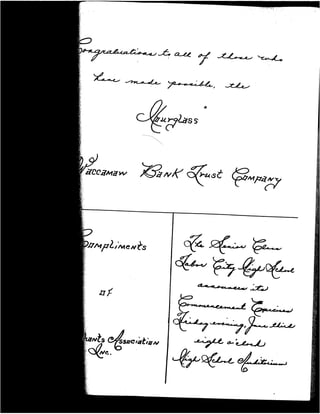 Congratulations to all of those who
have made possible, the
"Hourglass"
Waccamaw Bank & Trust Company
Compliments
of
Association
Inc.
The Senior Class
Tabor City High School
announces its
Commencement Exercises
Friday evening, June third
eight o'clock
High School Auditorium